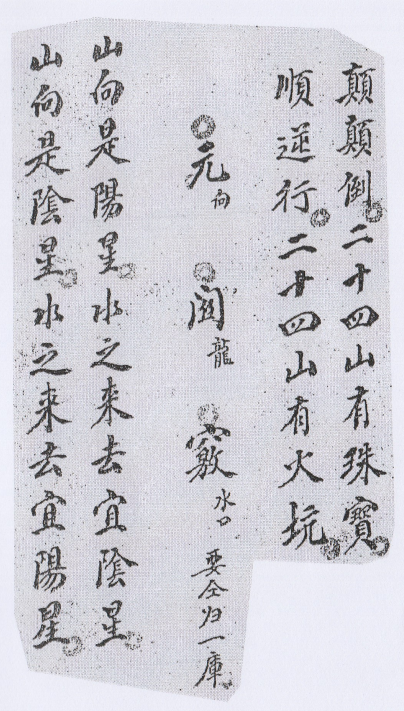 顛顛倒。二十四山有珠寶。
順逆行。二十四山有火坑。
元向 関龍 竅水口 要仝归一庫。
山向是陽星。水之来去宜陰星。
山向是陰星。水之来去宜陽星。